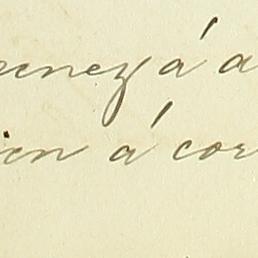 enez á a
ien á cor